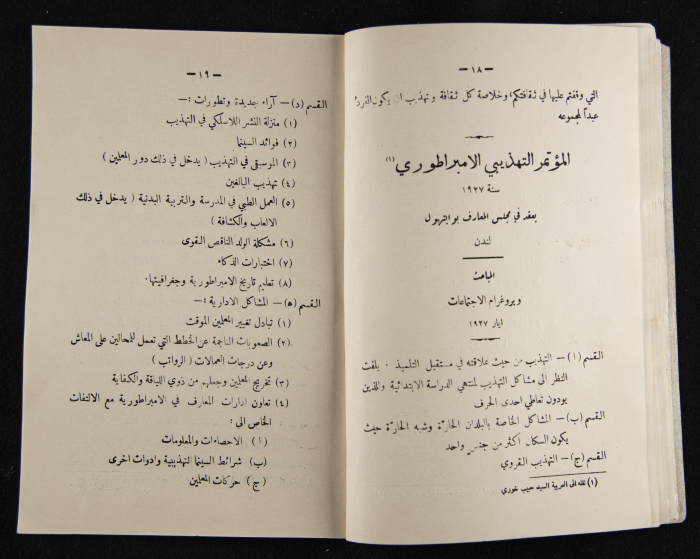 — ١٨ —
التي وقفتم عليها في ثقافتكم، وخلاصة كل ثقافة وتهذيب ان يكون الفرد
عبداً لمجموعه
المؤتمر التهذيبي الامبراطوري (١)
سنة ١٩٢٧
يعقد في مجلس المعارف بوايتهول
لندن
المباحث
وبروغرام الاجتماعات
ايار ١٩٢٧
القسم (ا) — التهذيب من حيث علاقته في مستقبل التلميذ . بلفت
النظر الى مشاكل التهذيب لمنتهي الدراسة الابتدائية وللذين
يودون تعاطي احدى الحرف
القسم (ب) — المشاكل الخاصة بالبلدان الحارّة وشبه الحارّة حيث
يكون السكان اكثر من جنس واحد
القسم (ج) — التهذيب القروي
(١) نقله الى العربية السيد حبيب خوري
— ١٩ —
القسم (د) — آراء جديدة وتطورات : —
(١) منزلة النشر اللاسلكي في التهذيب
(٢) فوائد السينما
(٣) الموسيقى في التهذيب ( يدخل في ذلك دور المعلمين )
(٤) تهذيب البالغين
(٥) العمل الطبي في المدرسة والتربية البدنية ( يدخل في ذلك
الالعاب والكشافة )
(٦) مشكلة الولد الناقص القوى
(٧) اختبارات الذكاء
(٨) تعليم تاريخ الامبراطورية وجغرافيتها.
القسم (ه) — المشاكل الادارية : —
(١) تبادل تغيير المعلمين الموقت
(٢) الصعوبات الناجمة عن الخطط التي تعمل للمحالين على المعاش
وعن درجات العمالات ( الرواتب )
(٣) تخريج المعلمين وجعلهم من ذوي اللياقة والكفاية
(٤) تعاون ادارات المعارف في الامبراطورية مع الالتفات
الخاص الى :
( ا ) الاحصاءات والمعلومات
(ب) شرائط السينما التهذيبية وادوات اخرى
( ج ) حركات المعلمين